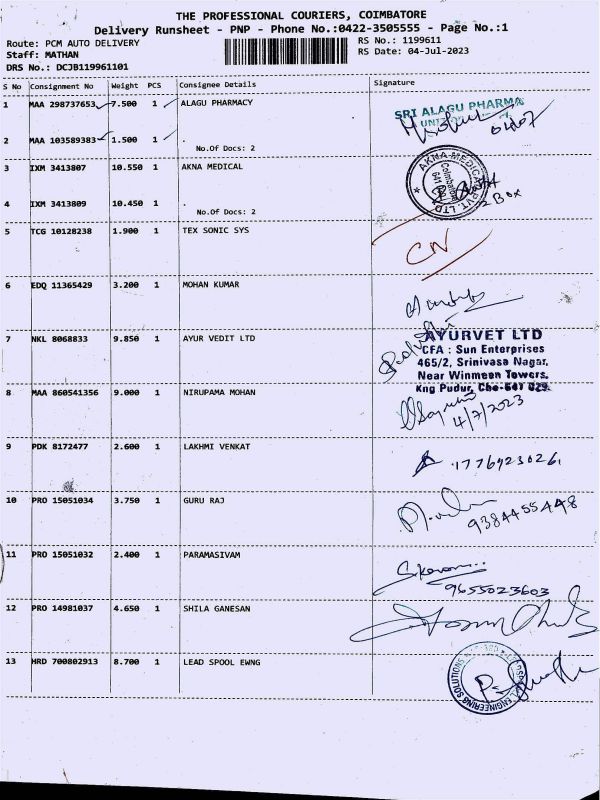 THE PROFESSIONAL COURIERS, COIMBATORE
Delivery Runsheet - PNP - Phone No.:0422-3505555 - Page No.:1
Route: PCM AUTO DELIVERY
RS No.: 1199611
Staff: MATHAN
RS Date: 04-Jul-2023
DRS No.: DCJB119961101
S No Consignment No Weight PCS Consignee Details Signature
1 MAA 298737653 7.500 1 ALAGU PHARMACY
SRI ALAGU PHARMA
2 MAA 103589383 1.500 1 .
No.Of Docs: 2
3 IXM 3413807 10.550 1 AKNA MEDICAL
AKNA MEDICAL PVT. LTD
Coimbatore
641
4 IXM 3413809 10.450 1 .
2 Box
No.Of Docs: 2
5 TCG 10128238 1.900 1 TEX SONIC SYS
CN
6 EDQ 11365429 3.200 1 MOHAN KUMAR
7 NKL 8068833 9.850 1 AYUR VEDIT LTD
AYURVET LTD
CFA : Sun Enterprises
465/2, Srinivasa Nagar,
Near Winmean Towers,
Kng Pudur, Cbe-641 029.
8 MAA 860541356 9.000 1 NIRUPAMA MOHAN
4/7/2023
9 PDK 8172477 2.600 1 LAKHMI VENKAT
10 PRO 15051034 3.750 1 GURU RAJ
9384455448
11 PRO 15051032 2.400 1 PARAMASIVAM
9655023603
12 PRO 14981037 4.650 1 SHILA GANESAN
13 HRD 700802913 8.700 1 LEAD SPOOL EWNG
ENGINEERING SOLUTIONS